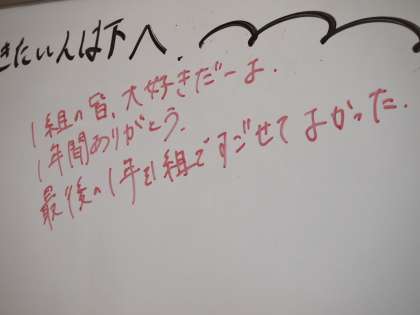 きたい人は下へ.
1組の皆、大好きだーよ.
1年間ありがとう.
最後の1年を1組ですごせてよかった.